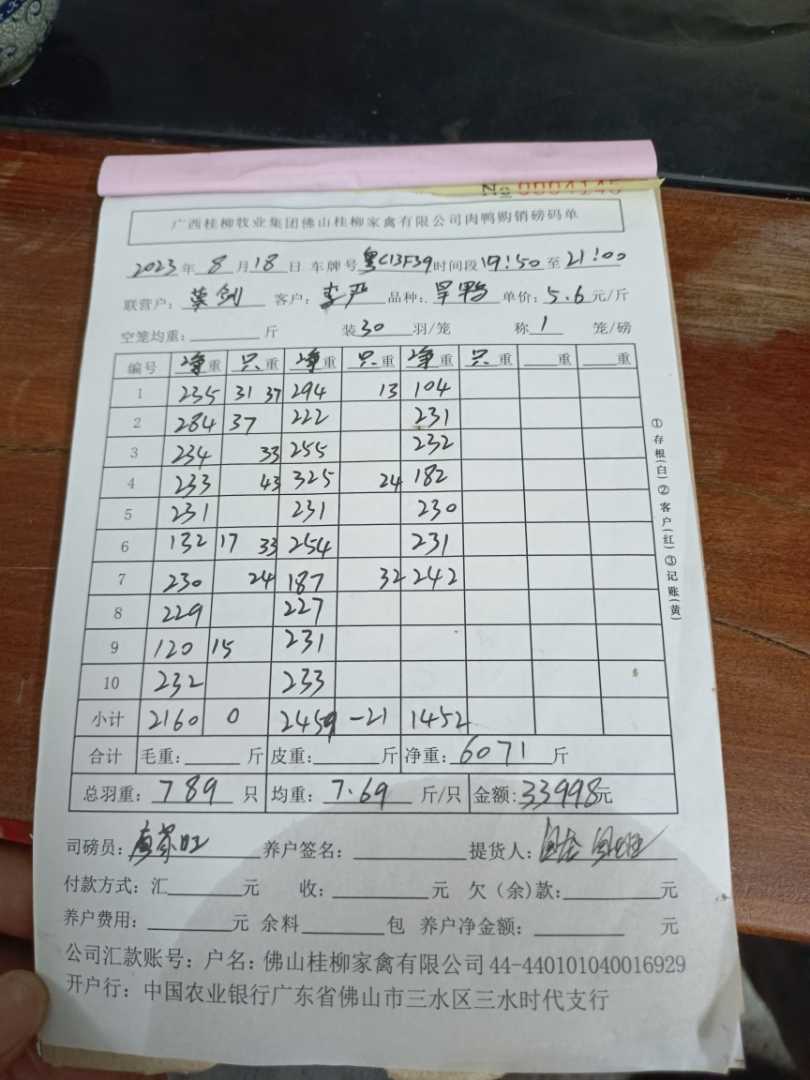 No 0004145
广西桂柳牧业集团佛山桂柳家禽有限公司肉鸭购销磅码单
2023年 8 月 18 日 车牌号 粤C13F39 时间段 19:50 至 21:00
联营户: 客户: 李严 品种: 旱鸭 单价: 5.6 元/斤
空笼均重: 斤 装 30 羽/笼 称 1 笼/磅
编号 净重 只重 净重 只重 净重 只重 重 重
1 235 31 37 294 13 104
2 284 37 222 231
3 234 33 255 232
4 233 43 325 24 182
5 231 231 230
6 132 17 33 254 231
7 230 24 187 32 242
8 229 227
9 120 15 231
10 232 233
小计 2160 0 2459 -21 1452
合计 毛重: 斤 皮重: 斤 净重: 6071 斤
总羽重: 789 只 均重: 7.69 斤/只 金额: 33998元
司磅员: 养户签名: 提货人:
付款方式: 汇 元 收: 元 欠(余)款: 元
养户费用: 元 余料 包 养户净金额: 元
公司汇款账号: 户名: 佛山桂柳家禽有限公司 44-440101040016929
开户行: 中国农业银行广东省佛山市三水区三水时代支行
①存根(白)②客户(红)③记账(黄)